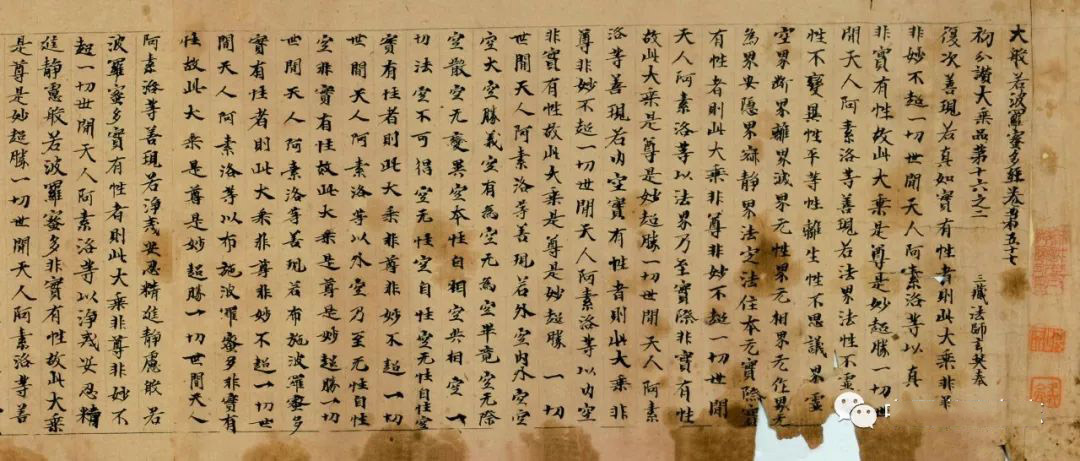 大般若波羅蜜多經卷第五十七
初分讚大乘品第十六之二 三藏法師玄奘奉
復次善現若真如實有性者則此大乘非尊
非妙不超一切世間天人阿素洛等以真
非實有性故此大乘是尊是妙超勝一切世
間天人阿素洛等善現若法界法性不虛
性不變異性平等性離生性不思議界虛
空界斷界離界滅界无性界无相界无作界无
為界安隱界寂靜界法定法住本无實際實
有性者則此大乘非尊非妙不超一切世間
天人阿素洛等以法界乃至實際非實有性
故此大乘是尊是妙超勝一切世間天人阿素
洛等善現若內空實有性者則此大乘非
尊非妙不超一切世間天人阿素洛等以內空
非實有性故此大乘是尊是妙超勝一切
世間天人阿素洛等善現若外空內外空空
空大空勝義空有為空无為空畢竟空无際
空散空无變異空本性空自相空共相空一
切法空不可得空无性空自性空无性自性空
實有性者則此大乘非尊非妙不超一切
世間天人阿素洛等以外空乃至无性自性
空非實有性故此大乘是尊是妙超勝一切
世間天人阿素洛等善現若布施波羅蜜多
實有性者則此大乘非尊非妙不超一切世
間天人阿素洛等以布施波羅蜜多非實有
性故此大乘是尊是妙超勝一切世間天人
阿素洛等善現若淨戒安忍精進靜慮般若
波羅蜜多實有性者則此大乘非尊非妙不
超一切世間天人阿素洛等以淨戒安忍精
進靜慮般若波羅蜜多非實有性故此大乘
是尊是妙超勝一切世間天人阿素洛等善